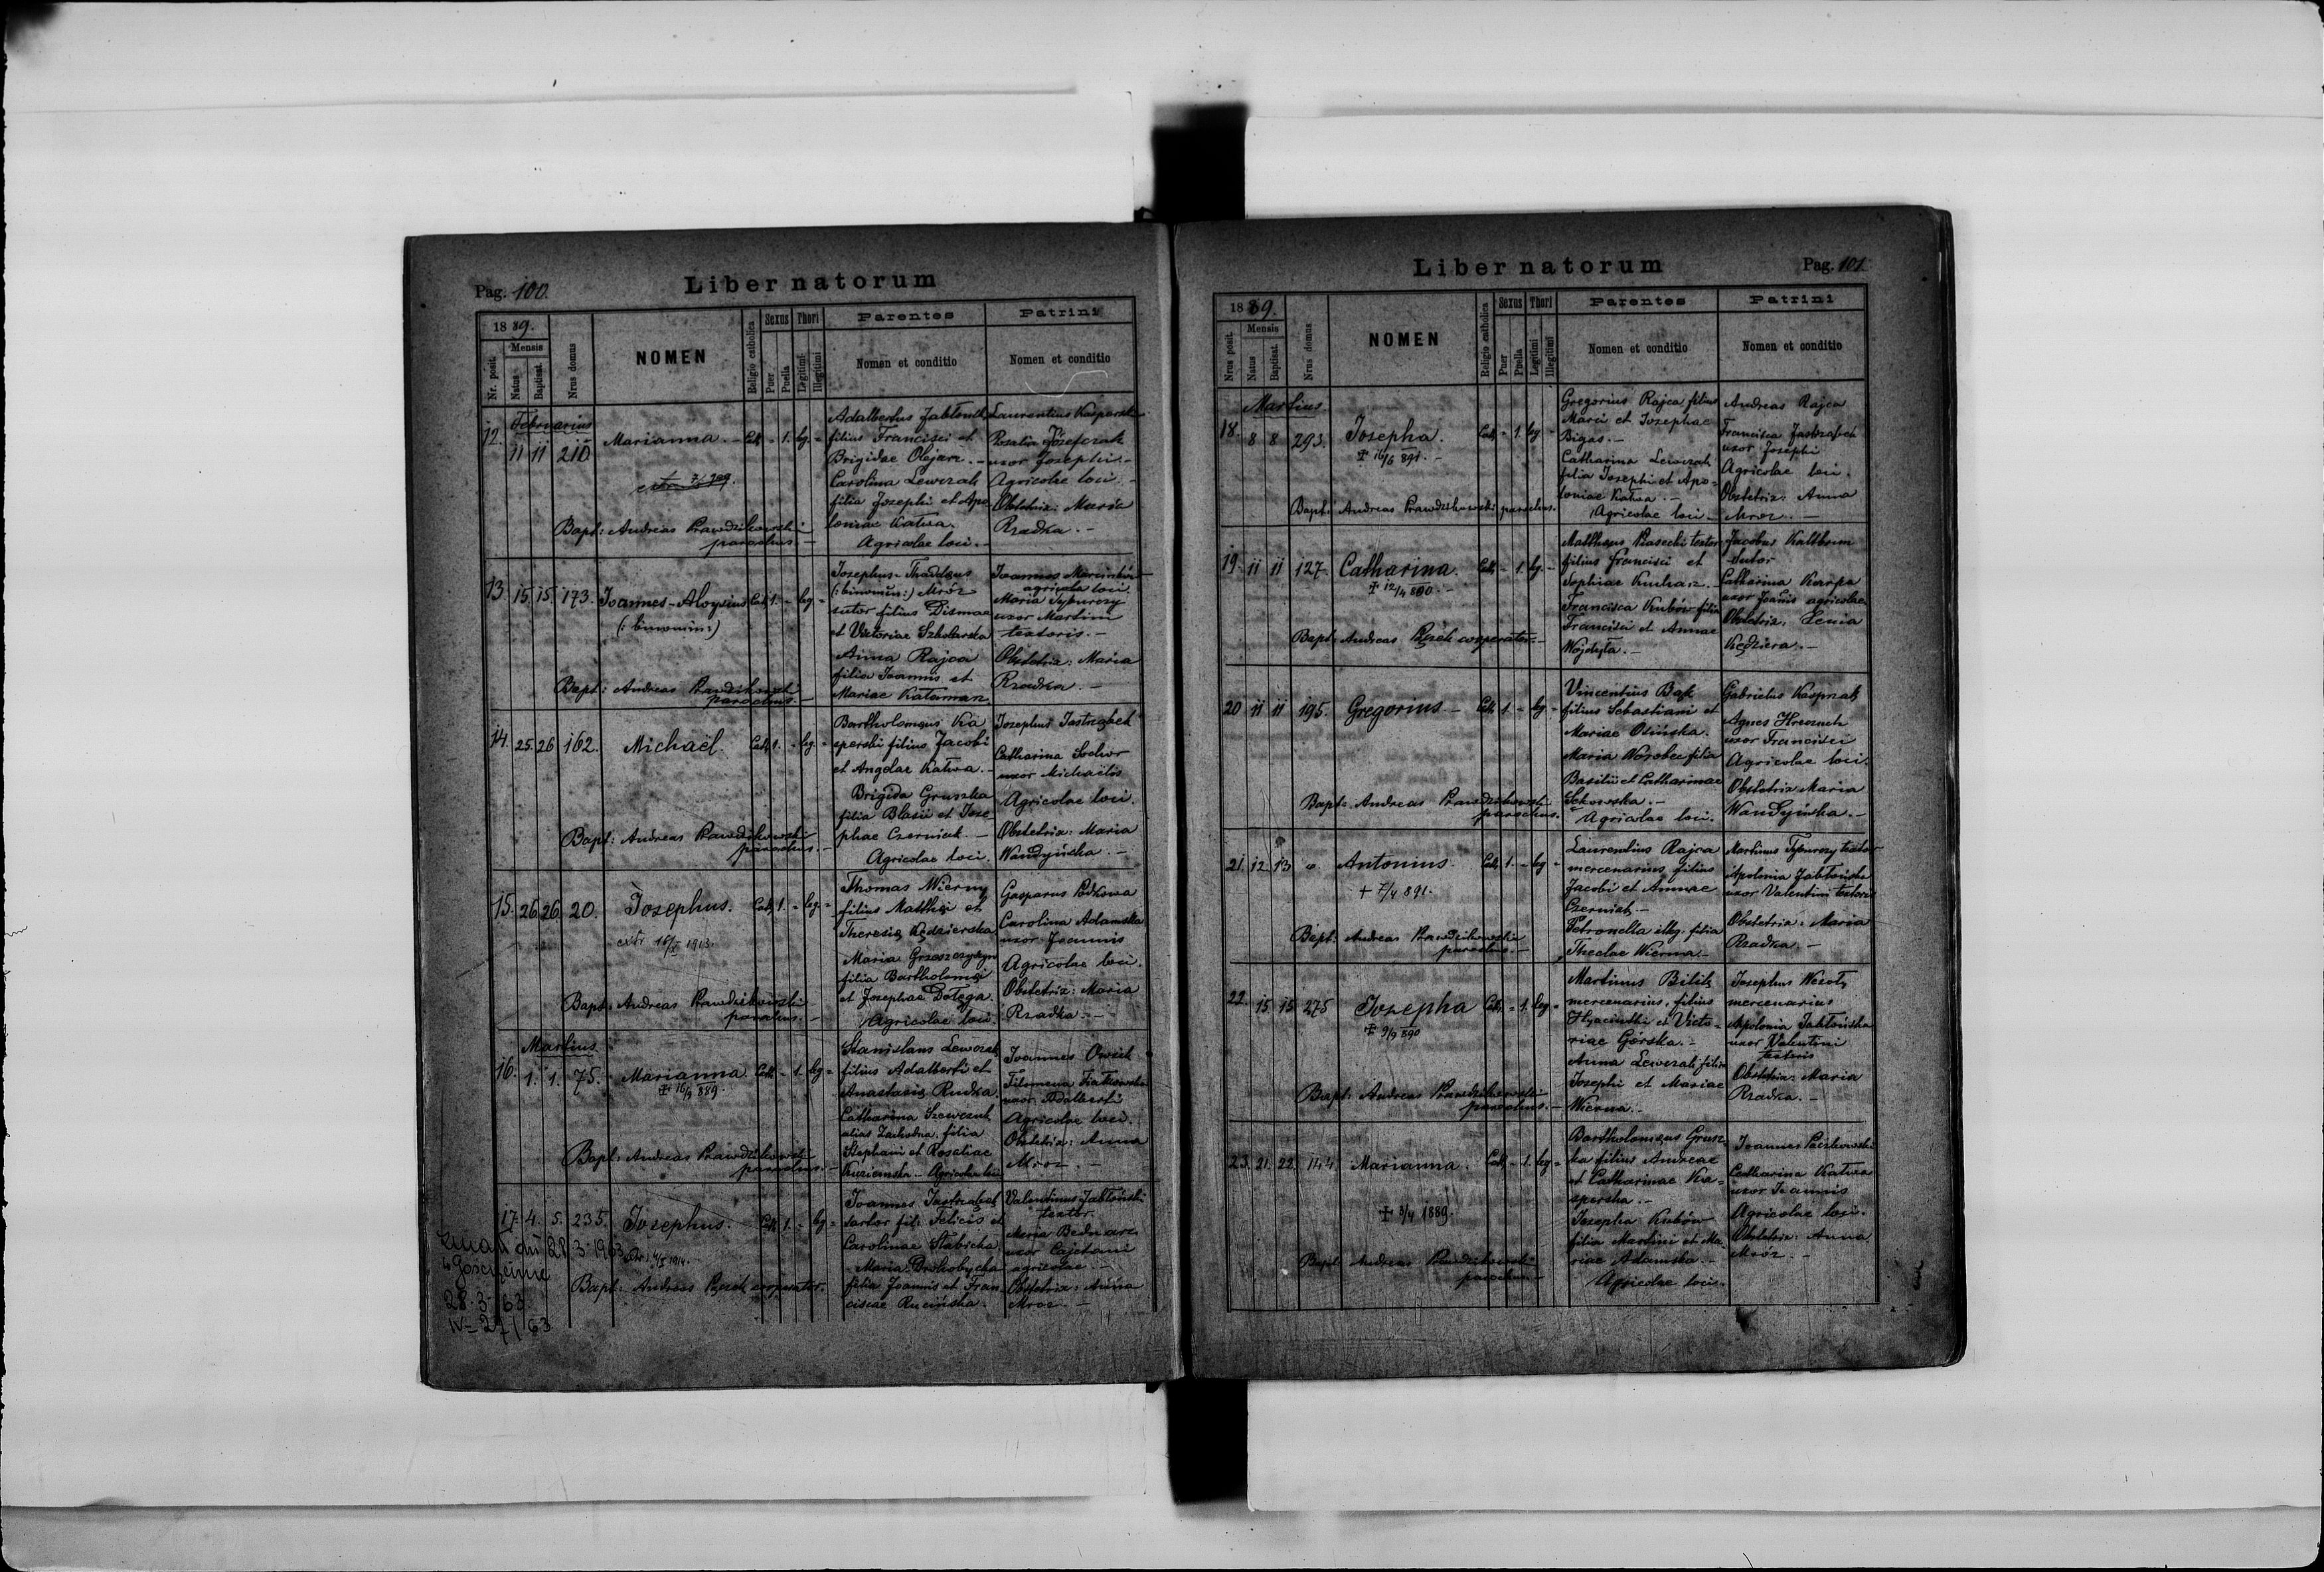 Pag. 100.
Liber natorum
1889.
Nr. posit.
Mensis
Natus
Baptisat.
Nrus domus
NOMEN
Religio catholica
Sexus
Puer
Puella
Thori
Legitimi
Illegitimi
Parentes
Nomen et conditio
Patrini
Nomen et conditio
Februarius
12. 11 11 210 Marianna. - Cath. - 1. leg. -
Bapt: Andreas Prawdzikowski
parochus. -
filius Francisci et
Brigidae Olejarz. -
Carolina Lewczak
filia Josephi et Apo
loniae Katwa.
Agricolae loci. -
Laurentius Kasperski
Rosalia Józefczak
uxor Josephi. -
Agricolae loci. -
Obstetrix: Maria
Rzadka. -
13. 15. 15. 173. Joannes-Aloysius Cath. 1. - leg. -
(: binomin:)
Bapt: Andreas Prawdzikowski
parochus. -
Josephus-Thaddeus
(: binomin:) Mróz
sutor filius Dismae
et Victoriae Szkolarska
Anna Rajca
filia Joannis et
Mariae Kataman
agricola loci.
Maria Tyburczy
uxor Martini
textoris. -
Obstetrix: Maria
Rzadka. -
14. 25. 26 162. Michaël. Cath. 1. - leg. -
Bapt: Andreas Prawdzikowski
parochus. -
Bartholomeus Ka
sperski filius Jacobi
et Angelae Katwa. -
Brigida Gruszka
filia Blasii et Jose
phae Czerniak. -
Agricolae loci.
Josephus Jastrzębek
Catharina Sochor
uxor Michaelis
Agricolae loci.
Obstetrix: Maria
Wandyńska. -
15. 26 26 20. Josephus. Cath. 1. - leg. -
1913.
Bapt: Andreas Prawdzikowski
parochus. -
Thomas Wierny
filius Matthei et
Theresie Kędzierska
Maria
filia Bartholomei
et Josephae Dołęga.
Agricolae loci.
Gasparus Podkowa
Carolina Adamska
uxor Joannis
Agricolae loci.
Obstetrix: Maria
Rzadka. -
Martius
16. 1. 1. 75. Marianna Cath. - 1. leg -
16/9 889
Bapt: Andreas Prawdzikowski
parochus. -
Stanislaus Lewczak
filius Adalberti et
Anastasie Rudka.
Catharina Szewczuk
alias Zachodna, filia
Stephani et Rosaliae
Kuziemska - Agricolae loci
Joannes
Filomena
uxor Adalberti
Agricolae loci.
Obstetrix: Anna
Mroz. -
17. 4. 5. 235. Josephus. Cath. 1. - leg -
1914.
Bapt: Andreas cooperator.
Joannes Jastrzębek
sartor fil: Felicis et
Carolinae Słabicka
Maria Drohobycka
filia Joannis et Fran
ciscae Rucińska.
Valentinus Jabłoński
textor.
Maria Bednarz
uxor Cajetani
agricolae. -
Obstetrix: Anna
Mroz. -
28.3.63
IV-27/63
Liber natorum
Pag. 101.
1889.
Nrus posit.
Mensis
Natus
Baptisat.
Nrus domus
NOMEN
Religio catholica
Sexus
Puer
Puella
Thori
Legitimi
Illegitimi
Parentes
Nomen et conditio
Patrini
Nomen et conditio
Martius
18. 8 8 293. Josepha. Cath. - 1 leg -
16/6 891. -
Bapt: Andreas Prawdzikowski parochus.
Gregorius Rajca filius
Marci et Josephae
Bigas. -
Catharina Lewczak
filia Josephi et Apo-
loniae Katwa. -
Agricolae loci -
Andreas Rajca
Francisca Jastrzębek
uxor Josephi
Agricolae loci.
Obstetrix: Anna
Mroz. -
19. 11 11 127. Catharina. Cath. - 1. leg. -
12/4 890. -
Bapt: Andreas cooperator. -
Mattheus Piasecki textor
filius Francisci et
Sophiae Kuchar. -
Francisca Kubów filia
Francisci et Annae
Wojdyła. -
Jacobus Kaltbrun
sutor
Catharina Karpa
uxor Joannis agricolae
Obstetrix: Xenia
Kędziera. -
20 11 11 195. Gregorius - Cath. 1. - leg -
Bapt: Andreas Prawdzikowski
parochus.
Vincentius Bąk
filius Sebastiani et
Mariae Osińska.
Maria Worobec filia
Basilii et Catharinae
Sękowska. -
Agricolae loci.
Gabrielus Kasprzak
Agnes
uxor Francisci
Agricolae loci.
Obstetrix Maria
Wandyńska. -
21. 12. 13 Antonius. Cath. 1. - leg -
+ 7/4 891.
Bapt: Andreas Prawdzikowski
parochus. -
Laurentius Rajca
mercenarius, filius
Jacobi et Annae
Czerniak -
Petronella illeg. filia
Theclae Wierna -
Martinus Tyburczy textor
Apolonia Jabłońska
uxor Valentini textoris
Obstetrix: Maria
Rzadka. -
22. 15. 15 275 Josepha Cath. - 1. leg -
9/9 890
Bapt: Andreas Prawdzikowski
parochus. -
Martinus Bilik
mercenarius, filius
Hyacinthi et Victo-
riae Górska. -
Anna Lewczak filia
Josephi et Mariae
Wierna. -
Josephus
mercenarius
Apolonia Jabłońska
uxor Valentini
textoris
Obstetrix: Maria
Rzadka. -
23. 21. 22. 144. Marianna. Cath. - 1. leg -
3/4 1889.
Bapt: Andreas Prawdzikowski
parochus. -
Bartholomeus Grusz
ka filius Andreae
et Catharinae Ka-
sperska. -
Josepha Kubów
filia Martini et Ma-
riae Adamska. -
Agricolae loci.
Joannes Paczkowski
Catharina Katwa
uxor Joannis
Agricolae loci.
Obstetrix: Anna
Mróz. -